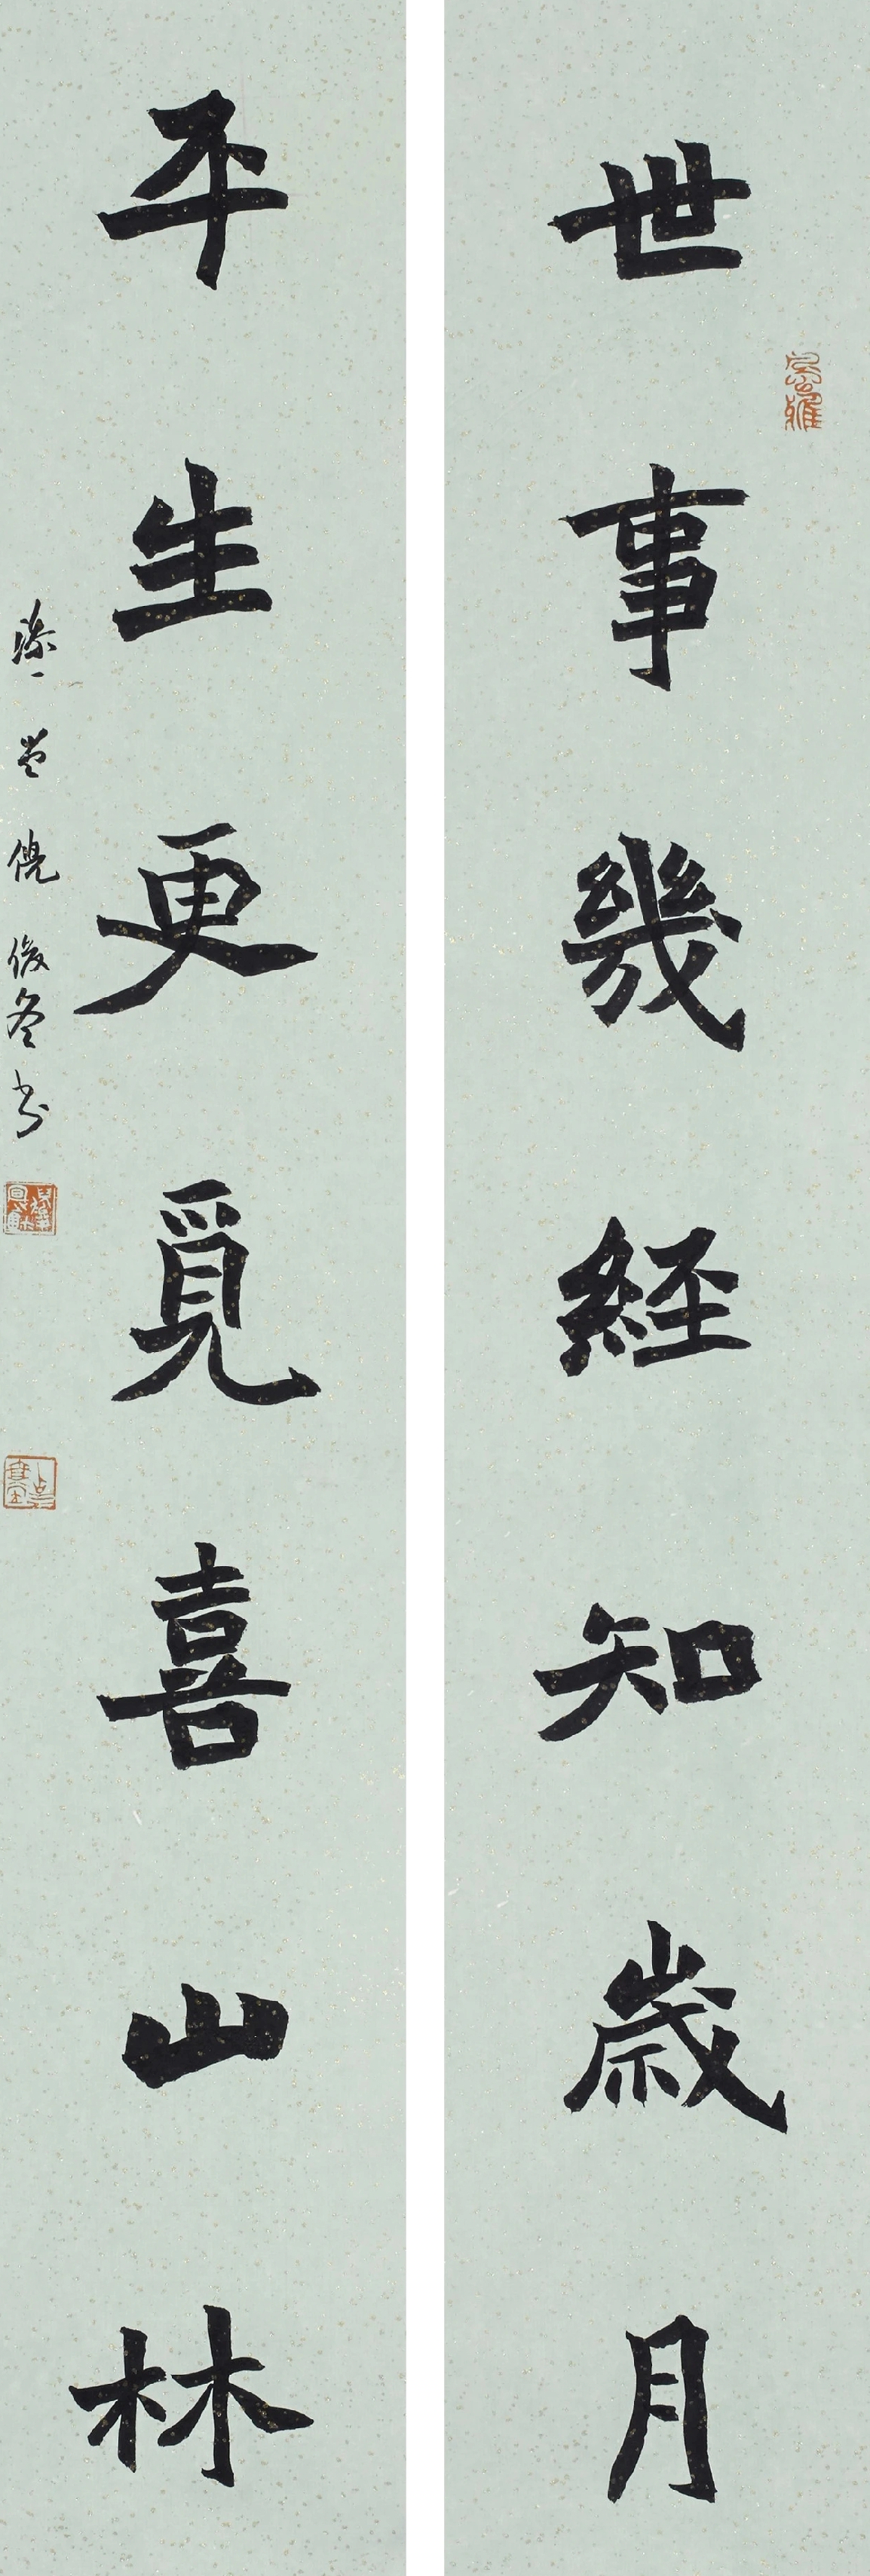 世事幾經知歲月
平生更覓喜山林
倪俊冬书